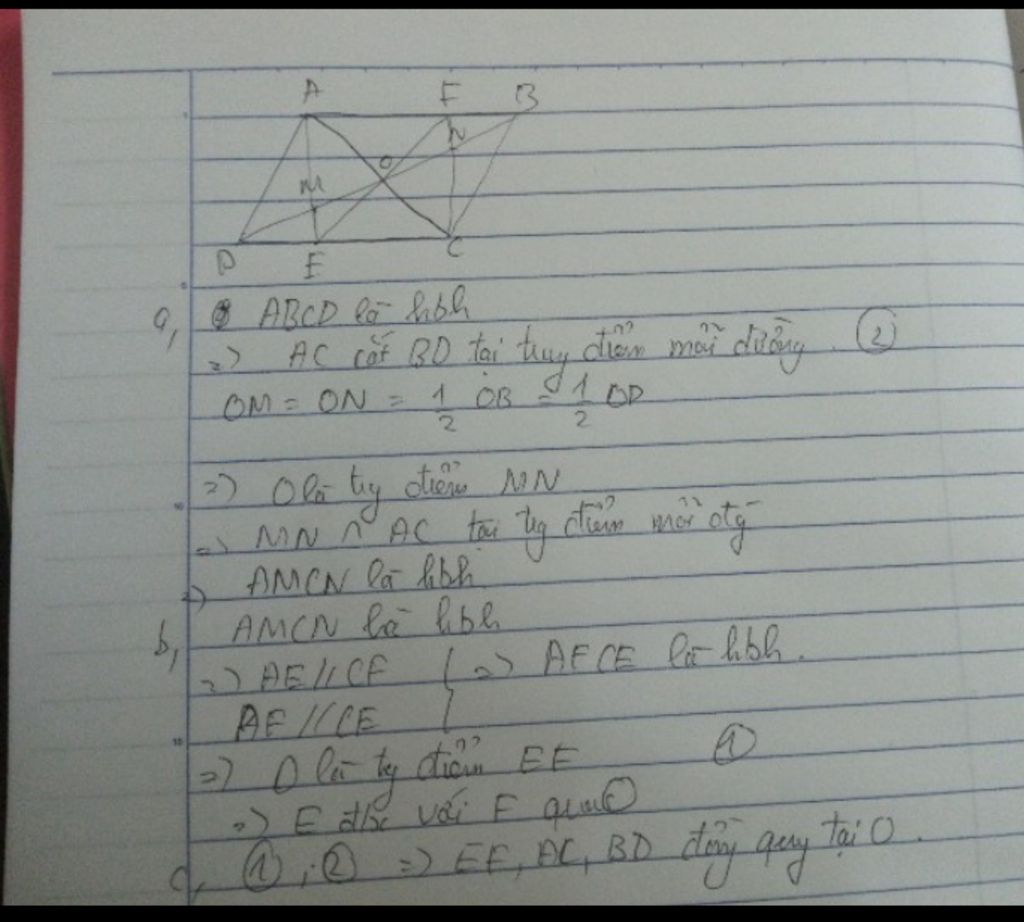 A F B
N
O
M
D E C
a, ABCD là hbh
=> AC cắt BD tại trung điểm mỗi đường. ②
OM = ON = 1/2 OB = 1/2 OD
=> O là tg điểm MN
=> MN ∩ AC tại tg điểm mỗi đtg
=> AMCN là hbh
b, AMCN là hbh
=> AE // CF } => AFCE là hbh.
AF // CE
=> O là tg điểm EF ①
=> E đx với F qua O
c, ①, ② => EF, AC, BD đồng quy tại O.